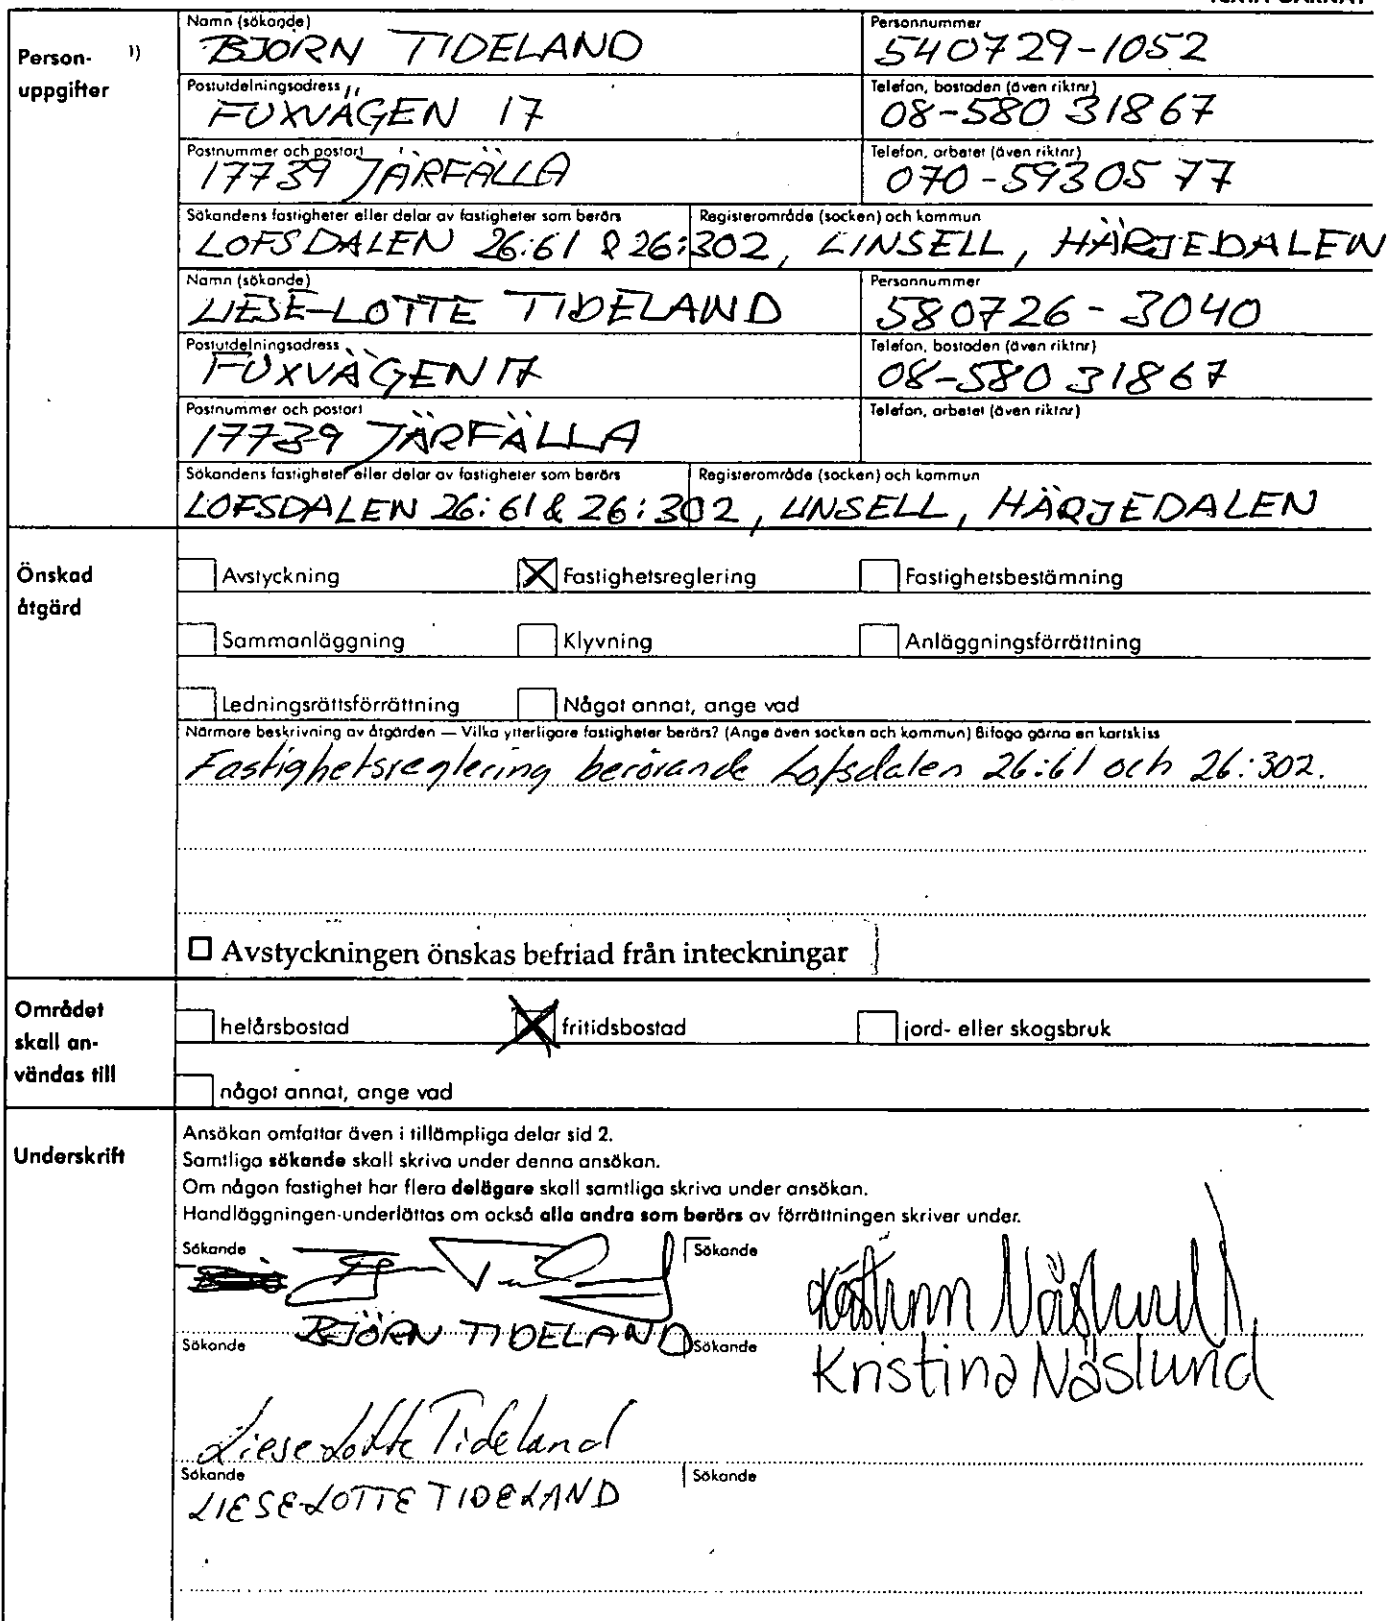 Person- 1)
uppgifter
Namn (sökande)
BJÖRN TIDELAND
Personnummer
540729-1052
Postutdelningsadress
FUXVÄGEN 17
Telefon, bostaden (även riktnr)
08-580 31867
Postnummer och postort
17739 JÄRFÄLLA
Telefon, arbetet (även riktnr)
070-5930577
Sökandens fastigheter eller delar av fastigheter som berörs
Registerområde (socken) och kommun
LOFSDALEN 26:61 & 26:302, LINSELL, HÄRJEDALEN
Namn (sökande)
LIESE-LOTTE TIDELAND
Personnummer
580726-3040
Postutdelningsadress
FUXVÄGEN 17
Telefon, bostaden (även riktnr)
08-580 31867
Postnummer och postort
17739 JÄRFÄLLA
Telefon, arbetet (även riktnr)
Sökandens fastigheter eller delar av fastigheter som berörs
Registerområde (socken) och kommun
LOFSDALEN 26:61 & 26:302, LINSELL, HÄRJEDALEN
Önskad
åtgärd
Avstyckning
Fastighetsreglering
Fastighetsbestämning
Sammanläggning
Klyvning
Anläggningsförrättning
Ledningsrättsförrättning
Något annat, ange vad
Närmare beskrivning av åtgärden — Vilka ytterligare fastigheter berörs? (Ange även socken och kommun) Bifoga gärna en kartskiss
Fastighetsreglering berörande Lofsdalen 26:61 och 26:302.
Avstyckningen önskas befriad från inteckningar
Området
skall an-
vändas till
helårsbostad
fritidsbostad
jord- eller skogsbruk
något annat, ange vad
Underskrift
Ansökan omfattar även i tillämpliga delar sid 2.
Samtliga sökande skall skriva under denna ansökan.
Om någon fastighet har flera delägare skall samtliga skriva under ansökan.
Handläggningen underlättas om också alla andra som berörs av förrättningen skriver under.
Sökande
Sökande
Kristina Näslund
Sökande
BJÖRN TIDELAND
Sökande
Kristina Näslund
Liese-Lotte Tideland
Sökande
Sökande
LIESE-LOTTE TIDELAND